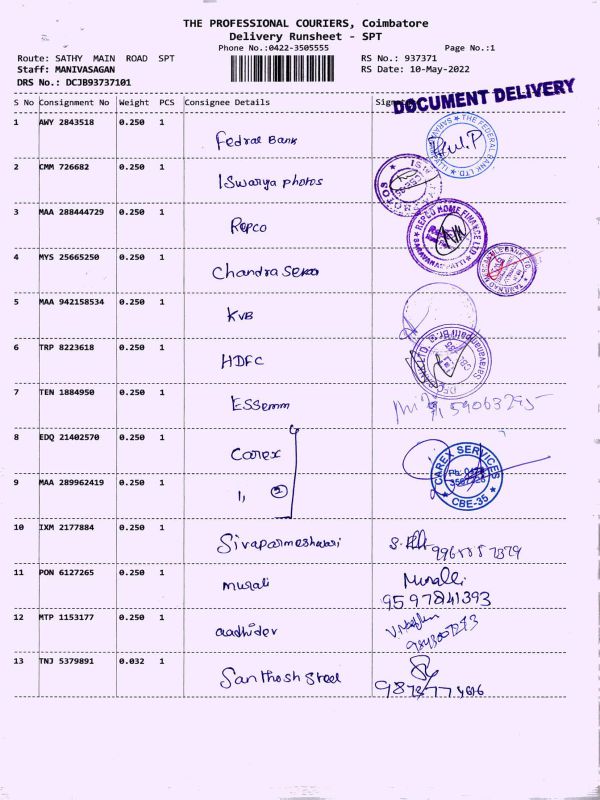 THE PROFESSIONAL COURIERS, Coimbatore
Delivery Runsheet - SPT
Phone No.:0422-3505555
Page No.:1
Route: SATHY MAIN ROAD SPT
RS No.: 937371
Staff: MANIVASAGAN
RS Date: 10-May-2022
DRS No.: DCJB93737101
DOCUMENT DELIVERY
S No Consignment No Weight PCS Consignee Details
1 AWY 2843518 0.250 1
Fedral Bank
THE FEDERAL BANK LTD
2 CMM 726682 0.250 1
Iswarya photos
3 MAA 288444729 0.250 1
Repco
REPCO HOME FINANCE LTD
SARAVANAMPATTI
4 MYS 25665250 0.250 1
Chandra
5 MAA 942158534 0.250 1
KVB
6 TRP 8223618 0.250 1
HDFC
7 TEN 1884950 0.250 1
ESSemm
8 EDQ 21402570 0.250 1
Carex
CAREX SERVICES
CBE-35
9 MAA 289962419 0.250 1
1, 2
10 IXM 2177884 0.250 1
Sivaparmeshwari
11 PON 6127265 0.250 1
murali
Muralli
9597841393
12 MTP 1153177 0.250 1
aadhidev
13 TNJ 5379891 0.032 1
Santhosh steel